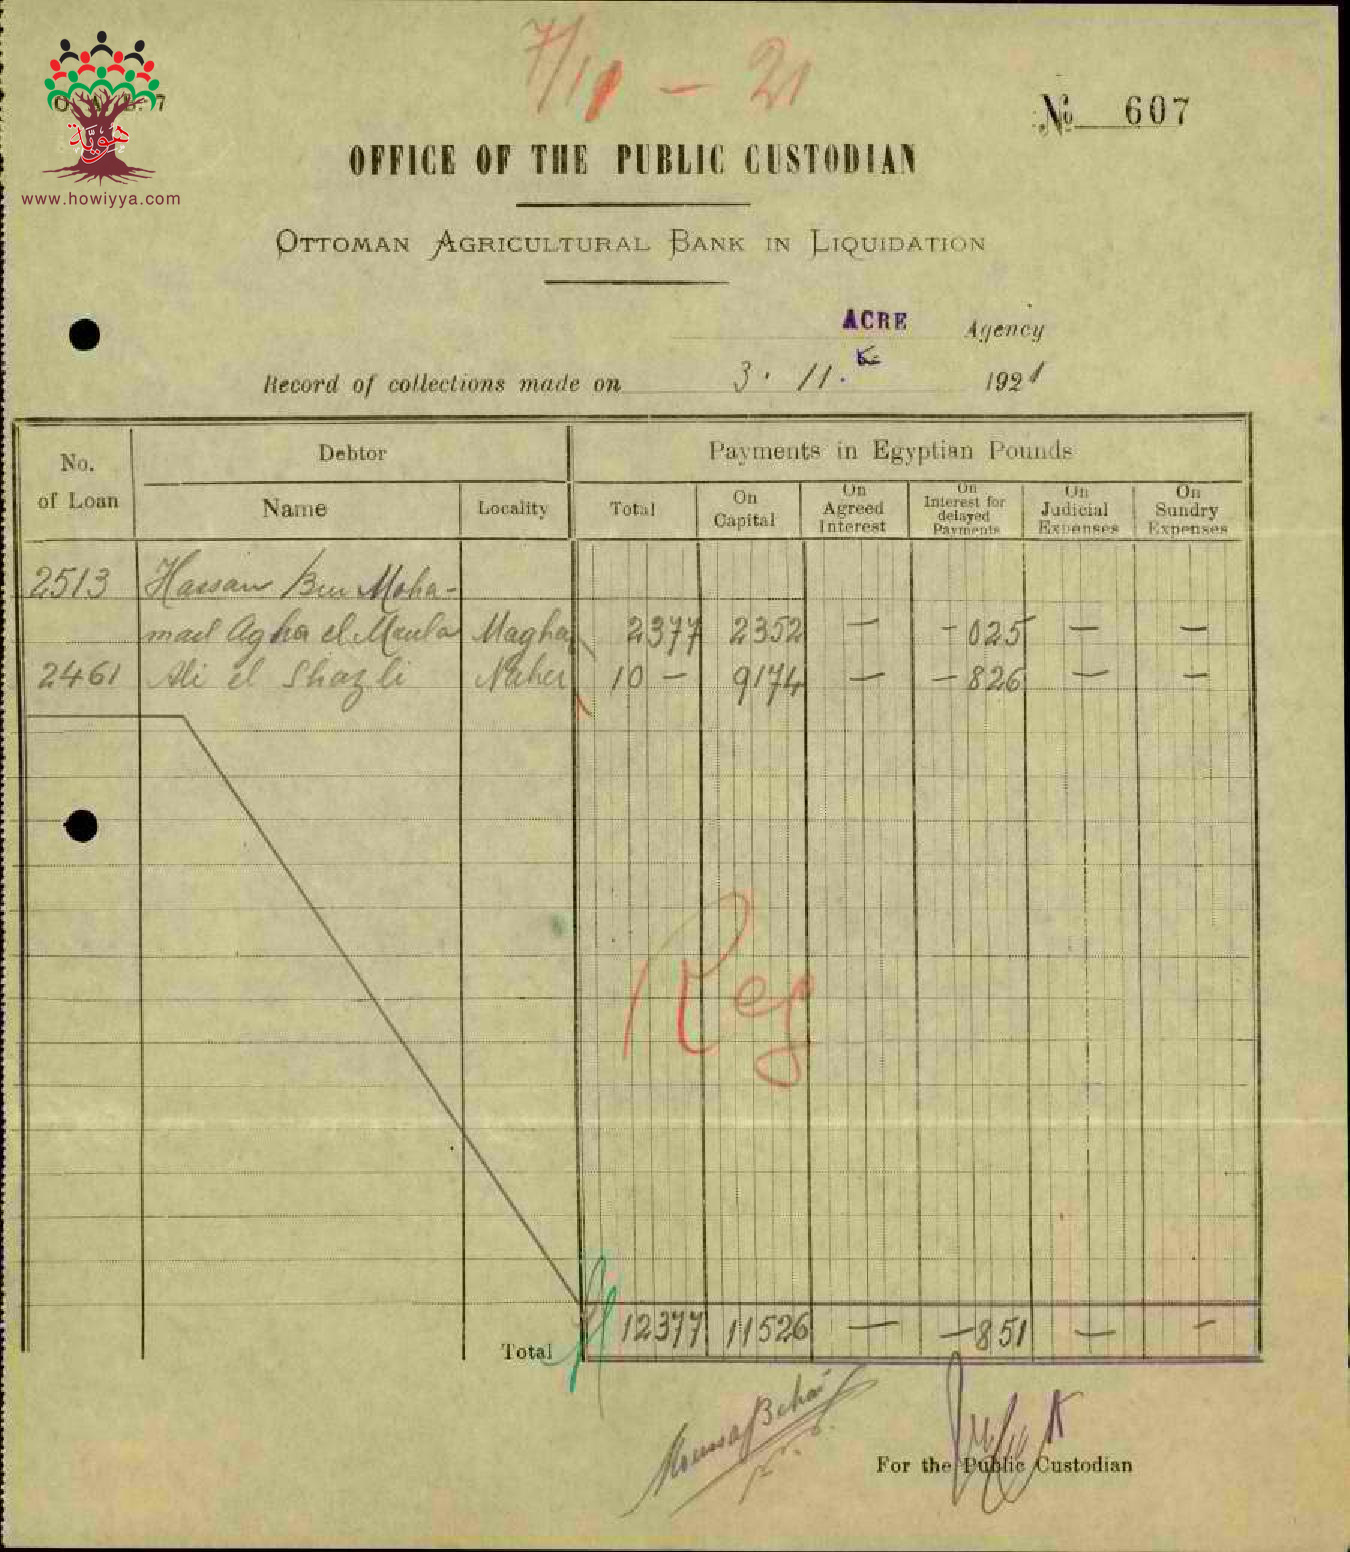 7/11 - 21
O. A. B. 7
هويّة
www.howiyya.com
№ 607
OFFICE OF THE PUBLIC CUSTODIAN
OTTOMAN AGRICULTURAL BANK IN LIQUIDATION
ACRE Agency
Record of collections made on 3. 11. 1921
No. of Loan
Debtor
Payments in Egyptian Pounds
Name
Locality
Total
On Capital
On Agreed Interest
On Interest for delayed Payments
On Judicial Expenses
On Sundry Expenses
2513 Hassan Ben Moha-
mad Agha el Maula Maghar 2377 2352 — - 025 — —
2461 Ali el Shazli Naher 10 — 9174 — - 826 — —
Reg
Total 12377 11526 — - 851 — —
Moussa
For the Public Custodian